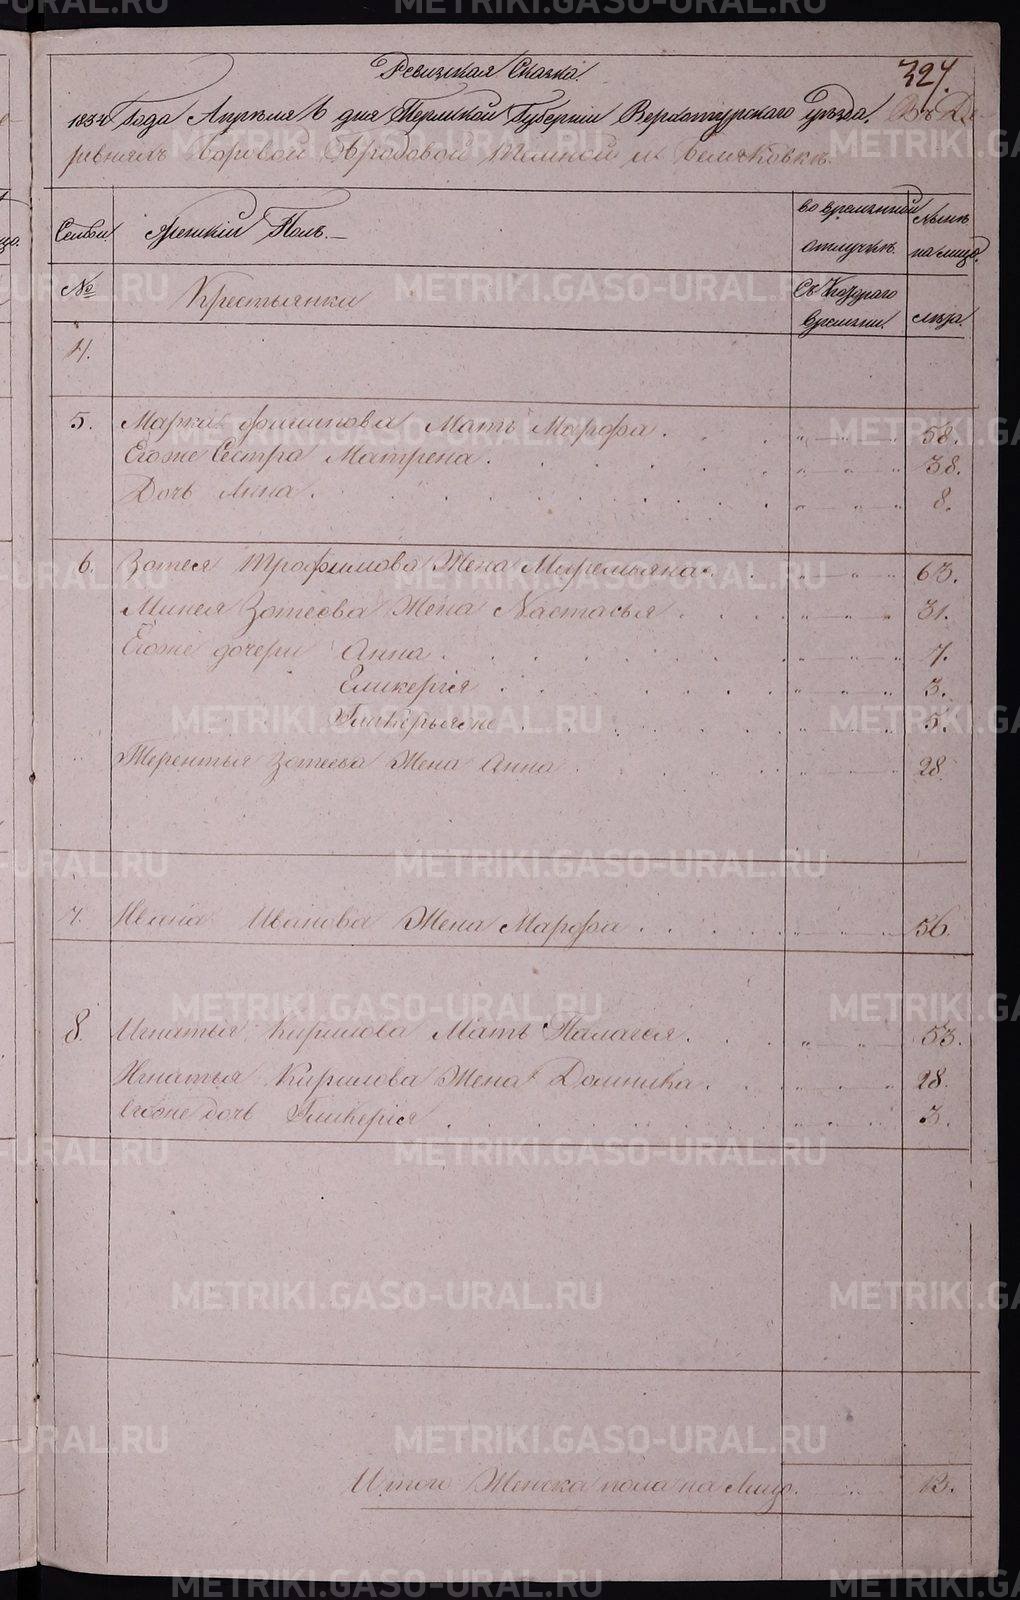 Ревизская Сказка.
327.
1834 Года Апреля 6 дня Пермской Губернии Верхотурского уезда. Въ Де-
ревняхъ Боровой Темной и Беляковке.
Семьи.
Женскій Полъ.
во временной
отлучке.
Ныне
на лицо.
№
Крестьянки
Съ Котораго
времени.
лета.
4.
5. Марка Филипова Мать Марфа. 58.
Егоже Сестра Матрена. 38.
Дочь Анна. 8.
6. Зотея Трофимова Жена Маремьяна. 63.
Минея Зотеева Жена Настасья 31.
Егоже дочери Анна. 7.
Гликерія 3.
5.
Терентья Зотеева Жена Анна 28.
7. Ивана Иванова Жена Марфа 56.
8. Игнатья Кирилова Мать Палагея. 53.
Игнатья Кирилова Жена Домника. 28.
Егоже дочь Гликерія 3.
Итого Женска пола на Лицо. 13.
METRIKI.GASO-URAL.RU